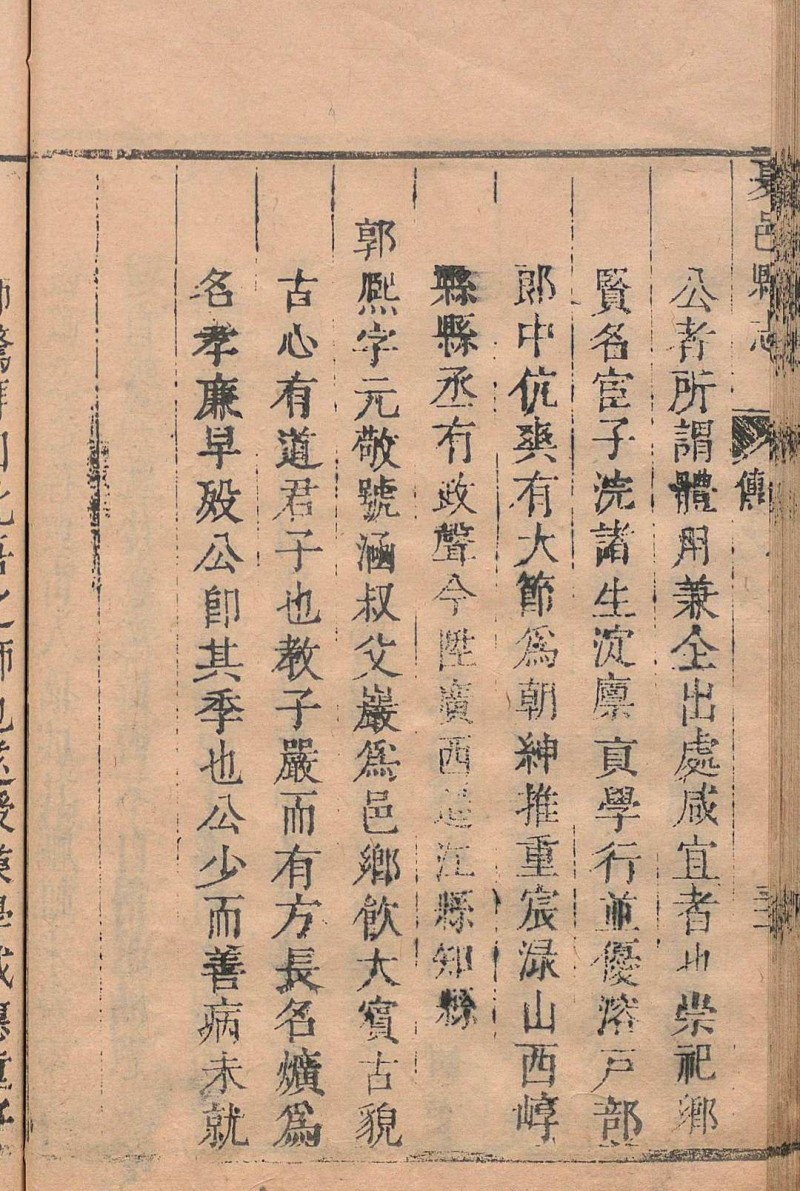 夏邑縣志
傳
公者所謂體用兼全出處咸宜者也崇祀鄉
賢名宦子浣諸生淀廩貢學行並優溶戶部
郎中伉爽有大節為朝紳推重宸淥山西崞
縣縣丞有政聲今陞廣西江縣知縣
郭熈字元敬號涵叔父巖為邑鄉飲大賓古貌
古心有道君子也教子嚴而有方長名爌為
名孝廉早殁公卽其季也公少而善病未就